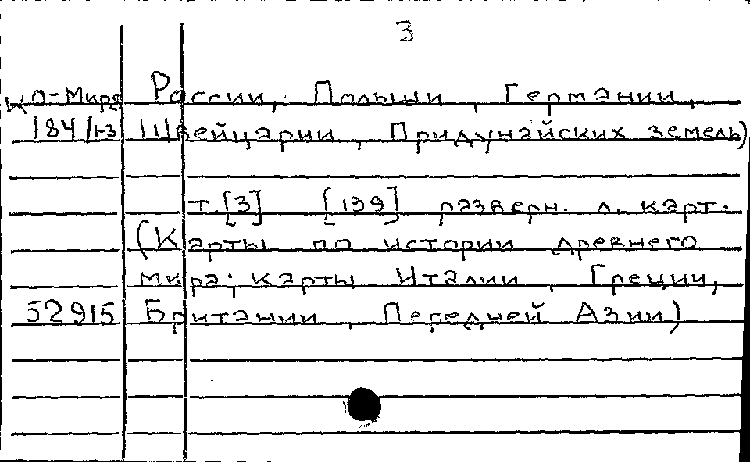 3
Ко-Мира России, Польши, Германии,
184/1-3 Швейцарии, Придунайских земель)
т.[3] [139] разверн. л. карт.
(Карты по истории древнего
мира; карты Италии, Греции,
52915 Британии, Передней Азии)